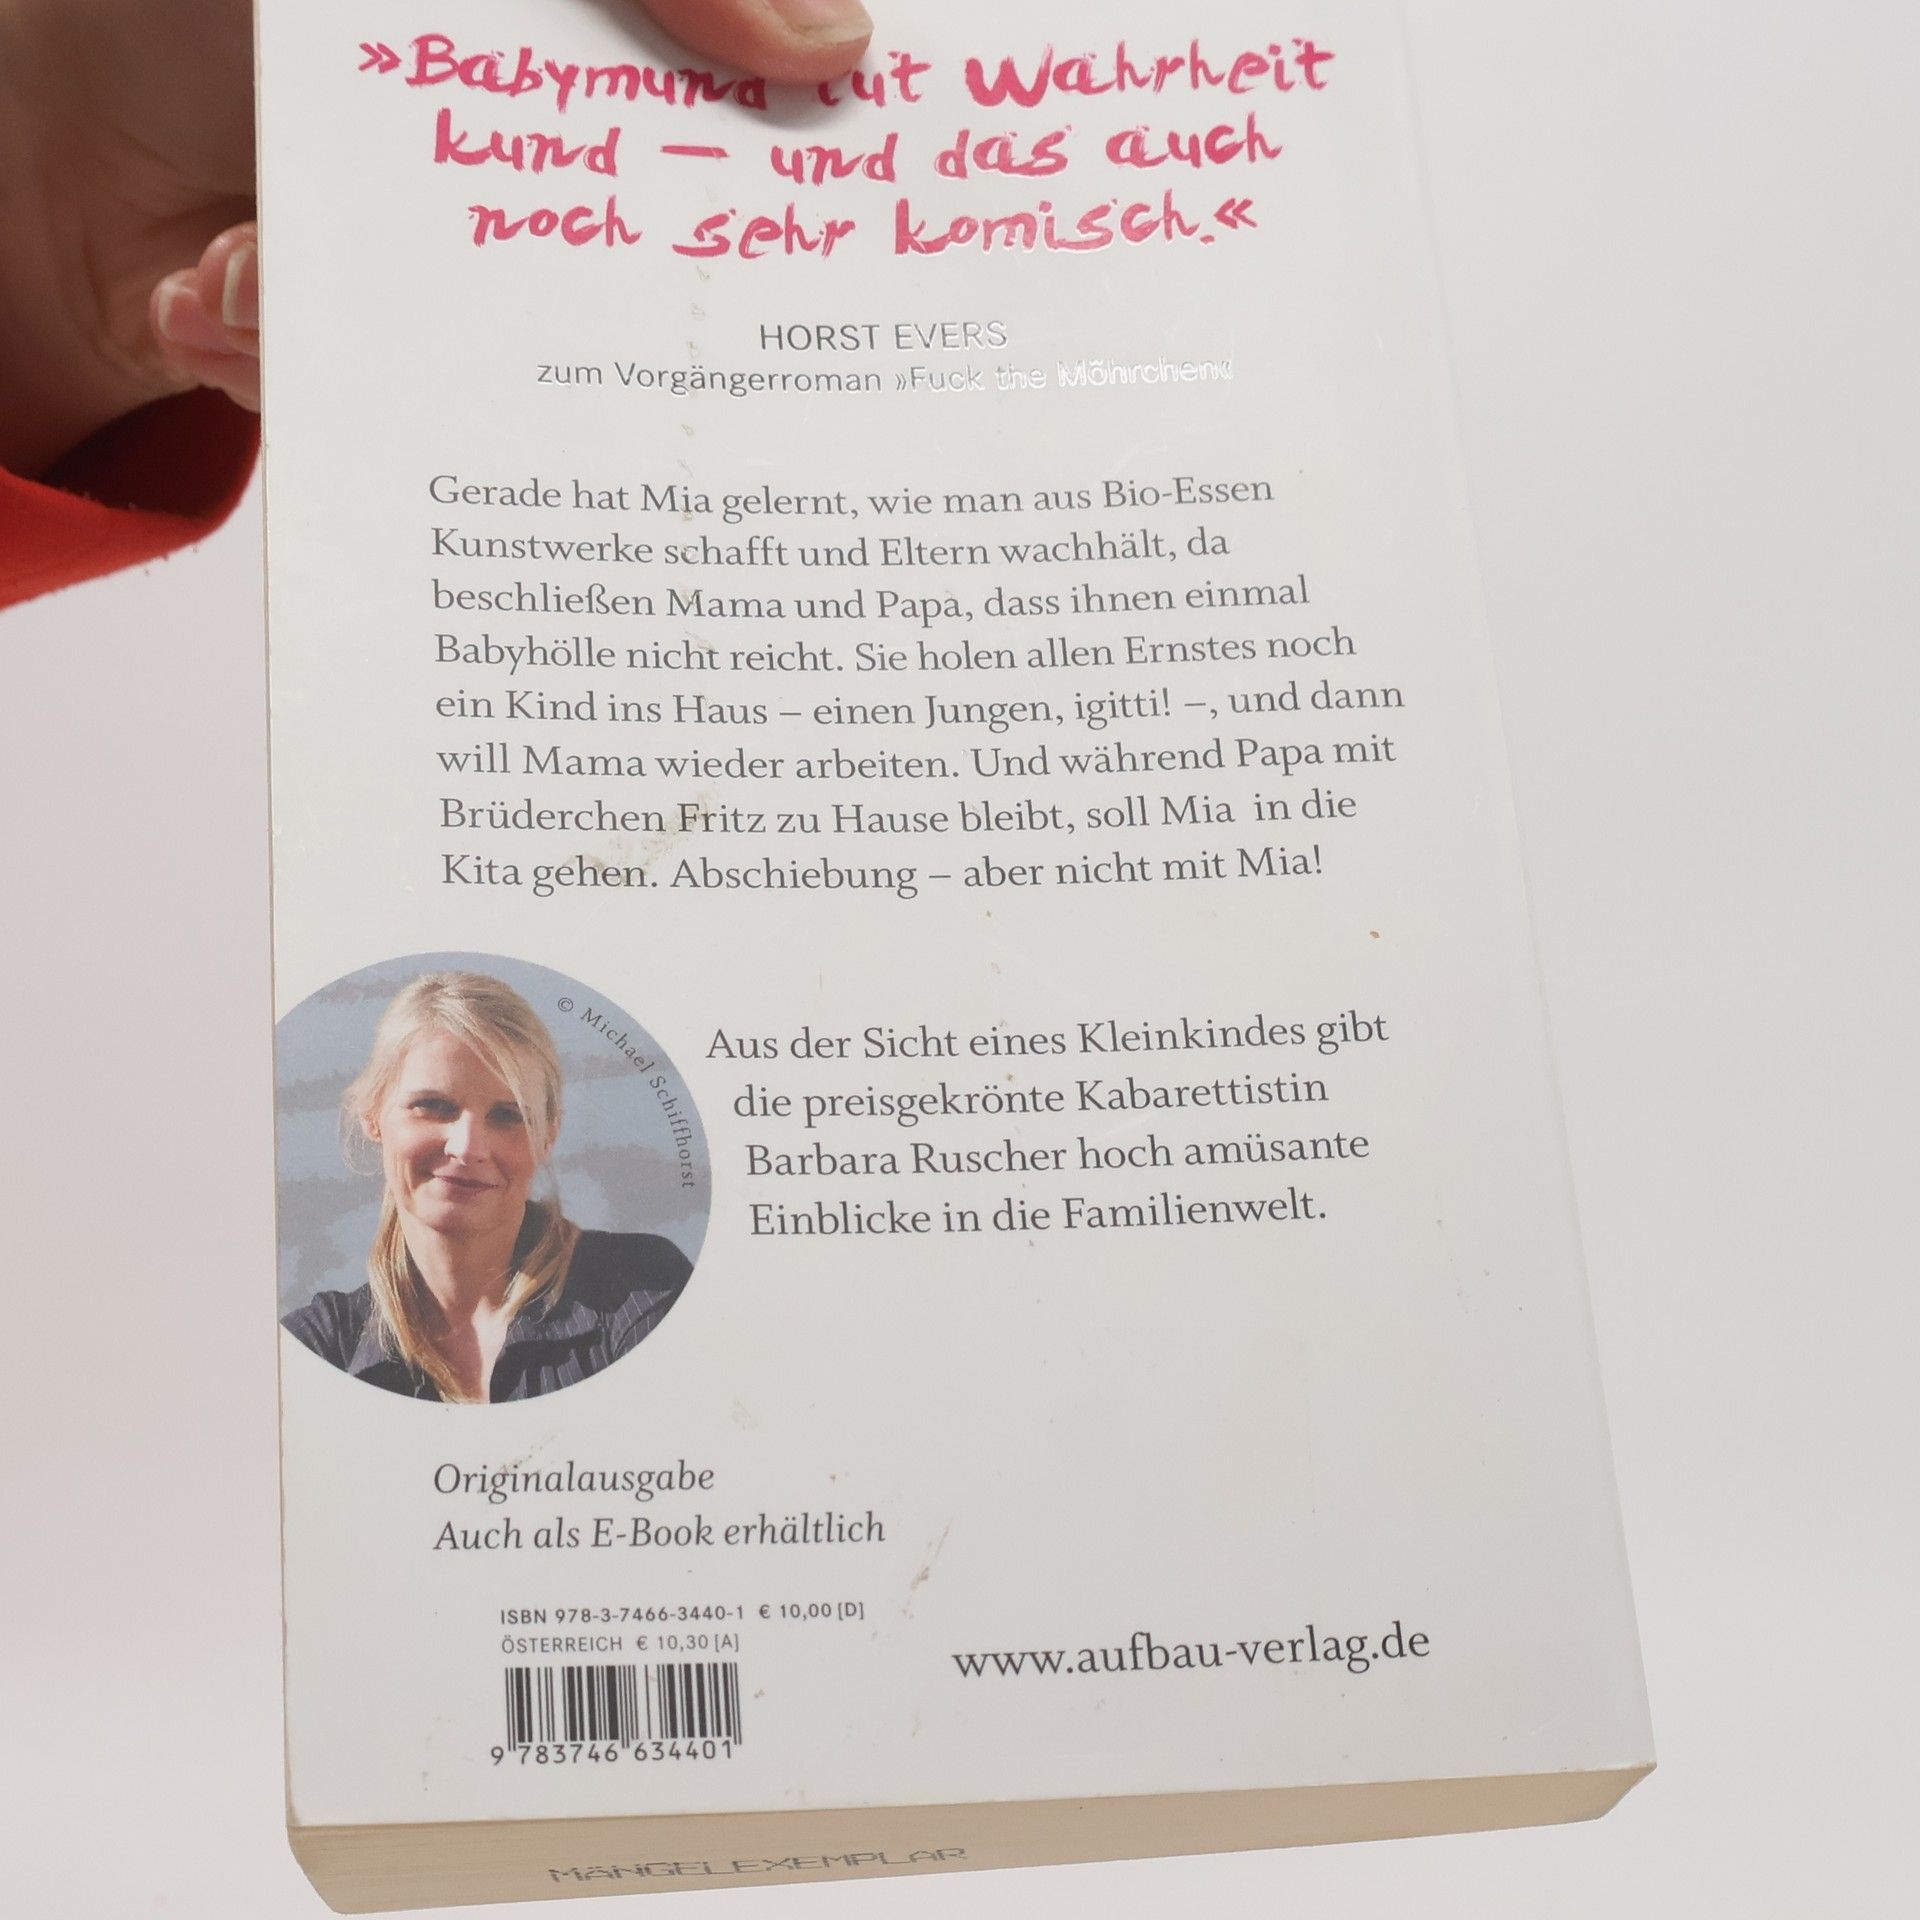 »Babymund tut Wahrheit
kund – und das auch
noch sehr komisch.«
HORST EVERS
zum Vorgängerroman »Fuck the Möhrchen«
Gerade hat Mia gelernt, wie man aus Bio-Essen
Kunstwerke schafft und Eltern wachhält, da
beschließen Mama und Papa, dass ihnen einmal
Babyhölle nicht reicht. Sie holen allen Ernstes noch
ein Kind ins Haus – einen Jungen, igitti! –, und dann
will Mama wieder arbeiten. Und während Papa mit
Brüderchen Fritz zu Hause bleibt, soll Mia in die
Kita gehen. Abschiebung – aber nicht mit Mia!
© Michael Schiffhorst
Aus der Sicht eines Kleinkindes gibt
die preisgekrönte Kabarettistin
Barbara Ruscher hoch amüsante
Einblicke in die Familienwelt.
Originalausgabe
Auch als E-Book erhältlich
ISBN 978-3-7466-3440-1 € 10,00 [D]
ÖSTERREICH € 10,30 [A]
9 783746 634401
www.aufbau-verlag.de
MÄNGELEXEMPLAR